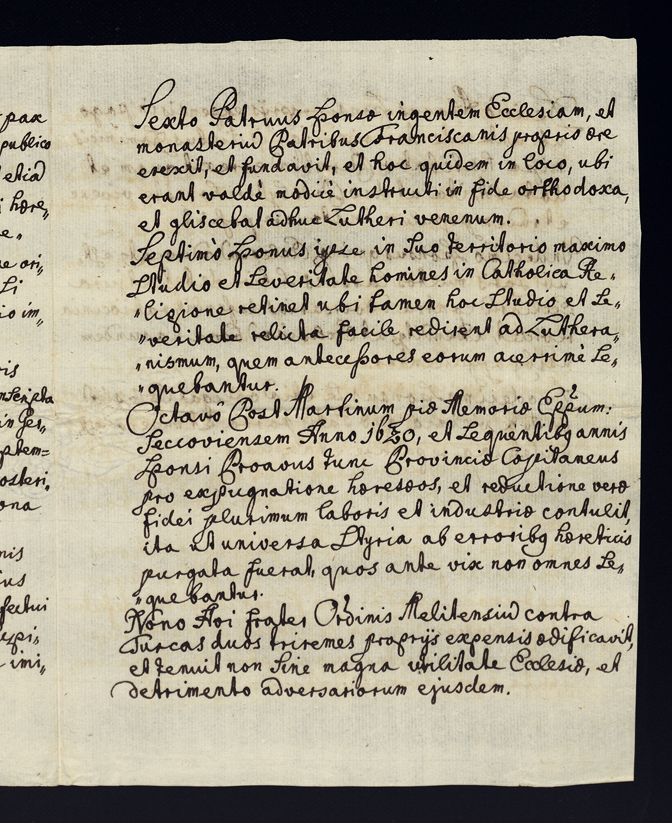 pax
publico
etiã
hære„
e„
e ori„
Li
io im„
ris
in Ges„
ptem=
osteri„
ona
nis
ius
fectui
uspi„
imi„
Sexto Patruus sponsæ ingentem Ecclesiam, et
monasteriũ Patribus Franciscanis proprio ære
erexit, et fundavit, et hoc quidem in loco, ubi
erant valdè modicè instructi in fide orthodoxa,
et gliscebat adhuc Lutheri venenum.
Septimò sponus ipse in suo territorio maximo
studio et severitate homines in Catholica Re„
„ligione retinet ubi tamen hoc studio et se„
„veritate relicta facile redirent ad Luthera„
„nismum, quem antecessores eorum acerrimè se„
„quebantur.
Octavò Post Martinum piæ Memoriæ Eppũm:
Seccoviensem Anno 1620, et sequentibq annis
sponsi Proavus tunc Provinciæ Capitaneus
pro expugnatione hæreseos, et reductione veræ
fidei plurimum laboris et industriæ contulit,
ita ut universa Styria ab erroribq hæreticis
purgata fuerat, quos ante vix non omnes se„
„quebantur.
Nono Avi frater Ordinis Melitensiũ contra
Turcas duos triremes proprijs expensis ædificavit,
et tenuit non sine magna utilitate Ecclesiæ, et
detrimento adversariorum ejusdem.